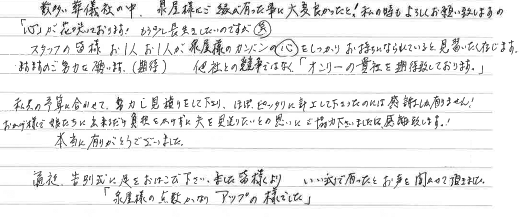 数多い葬儀社の中、泉屋様にご縁が有った事に大変良かったと!私の時もよろしくお願い致しますの
「心」が花咲いております!もう少し長生きしたいのですが 笑
スタッフの皆様 お1人お1人が泉屋様のカンバンの心をしっかりお持ちになられていると見習いたく存じます。
ますますのご努力を願います。(期待) 他社との競争ではなく「オンリーの貴社を期待致しております。」
私共の予算に合わせて、努力し見積りをして下り、ほぼピッタリに計上して下さったのには感謝しか有りません!
おかげ様で娘たちに出来るだけ負担をかけずに夫を見送りたいとの思いにご協力下さいましたこと感謝致します!
本当に有りがとうございました。
通夜、告別式に足をおはこび下さいました皆様より いい式で有ったとお声を聞かせて頂きました。
「泉屋様の点数かなりアップの様でした」